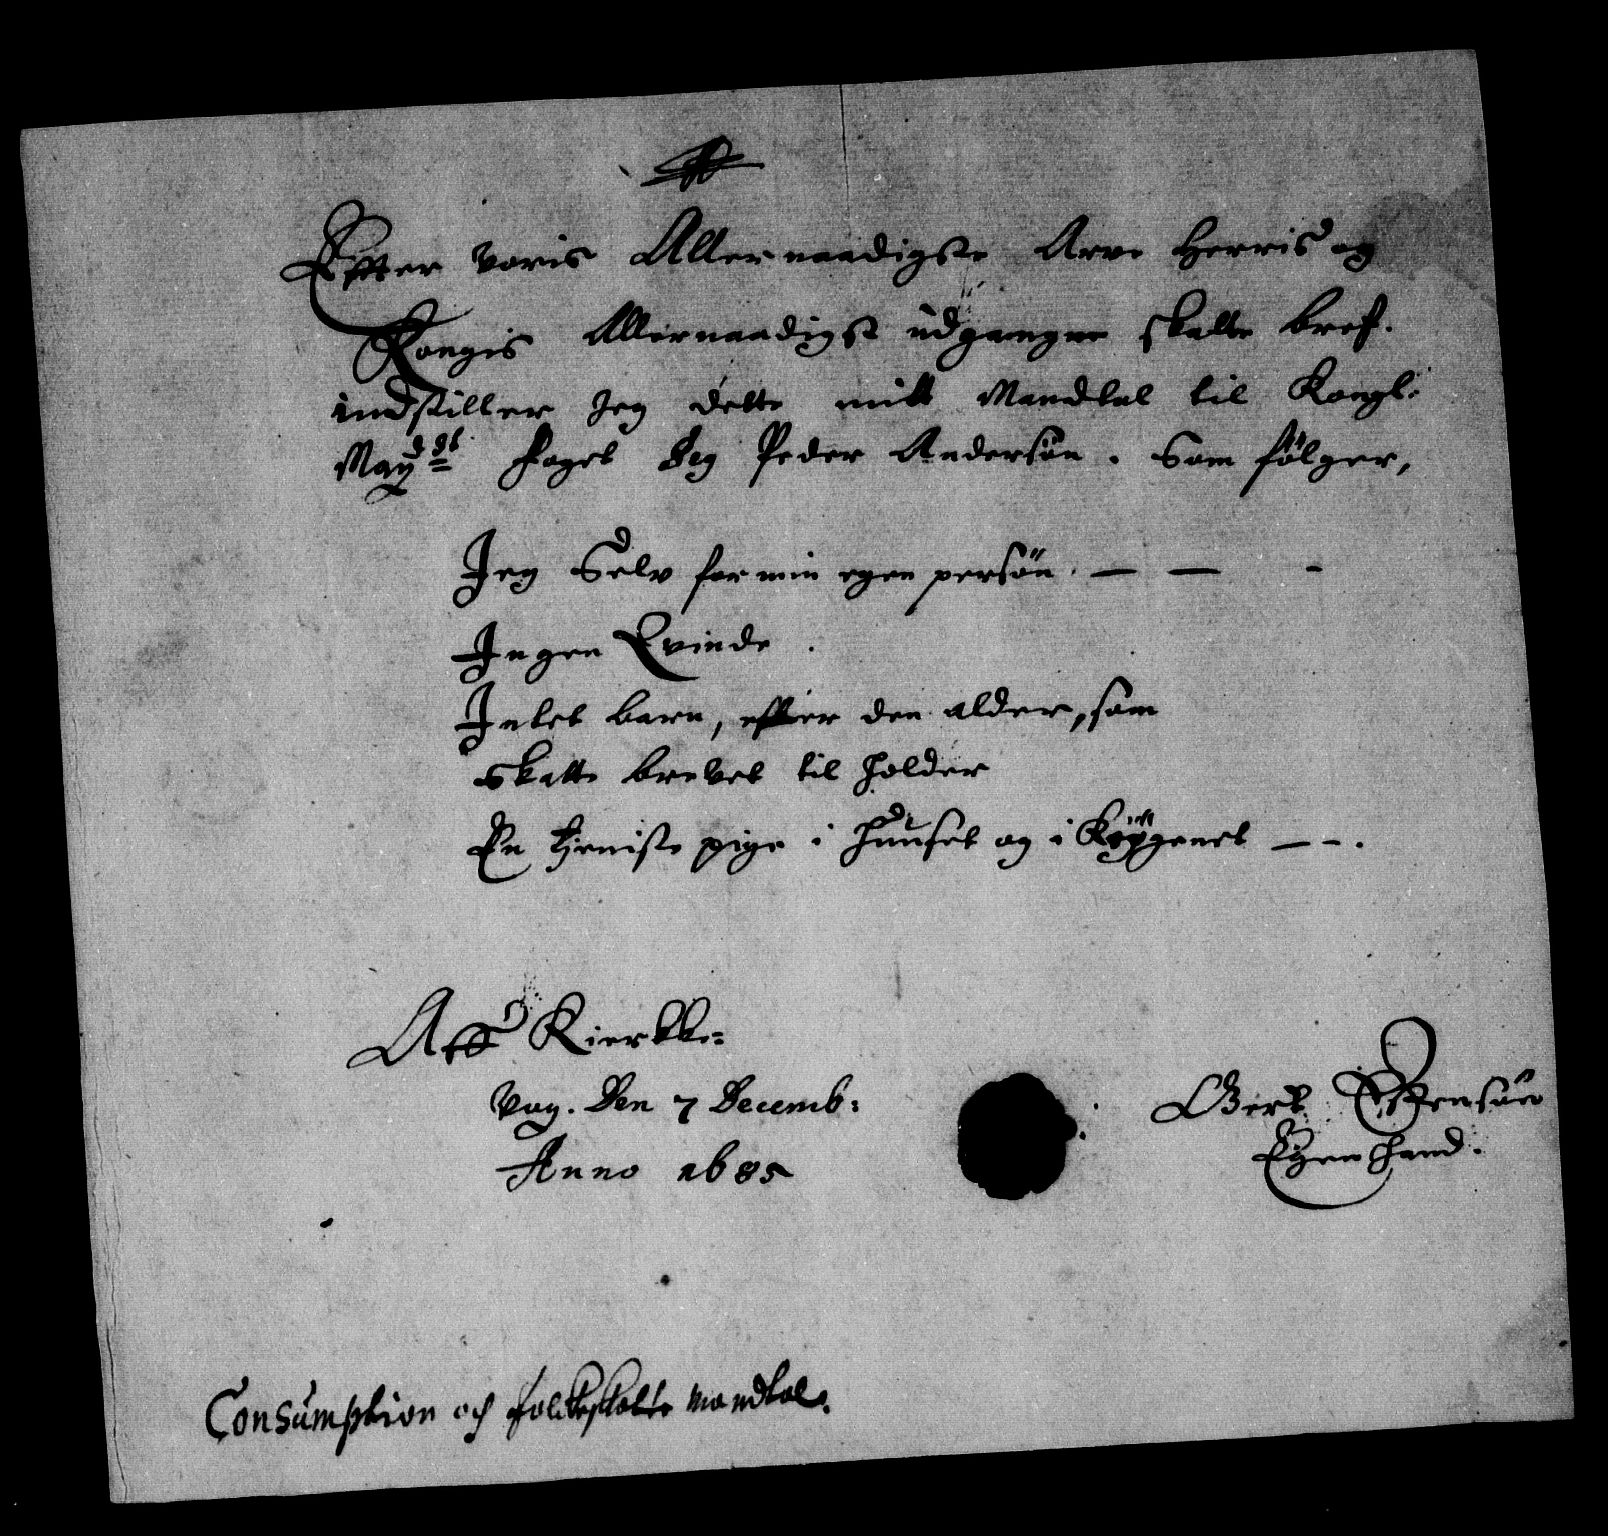 Effter voris Allernaadigste Arve Herris og
Kongis Allernaadigst udgangne skatte bref.
indstiller Jeg dette mitt Mandtal til Kongl:
May: foget Sr Peder Andersön. Som fölger,
Jeg Selv for min egen persön. — — -
Ingen Qvinde.
Intet barn, efter den alder, som
skatte brevet til holder
En tjeniste pige i huuset og i Köggenet — -.
Aff Kierkke=
vog. Den 7 Decemb:
Anno 1685
Gert
Egen hand.
Consumption och folckeskatte mandtal.